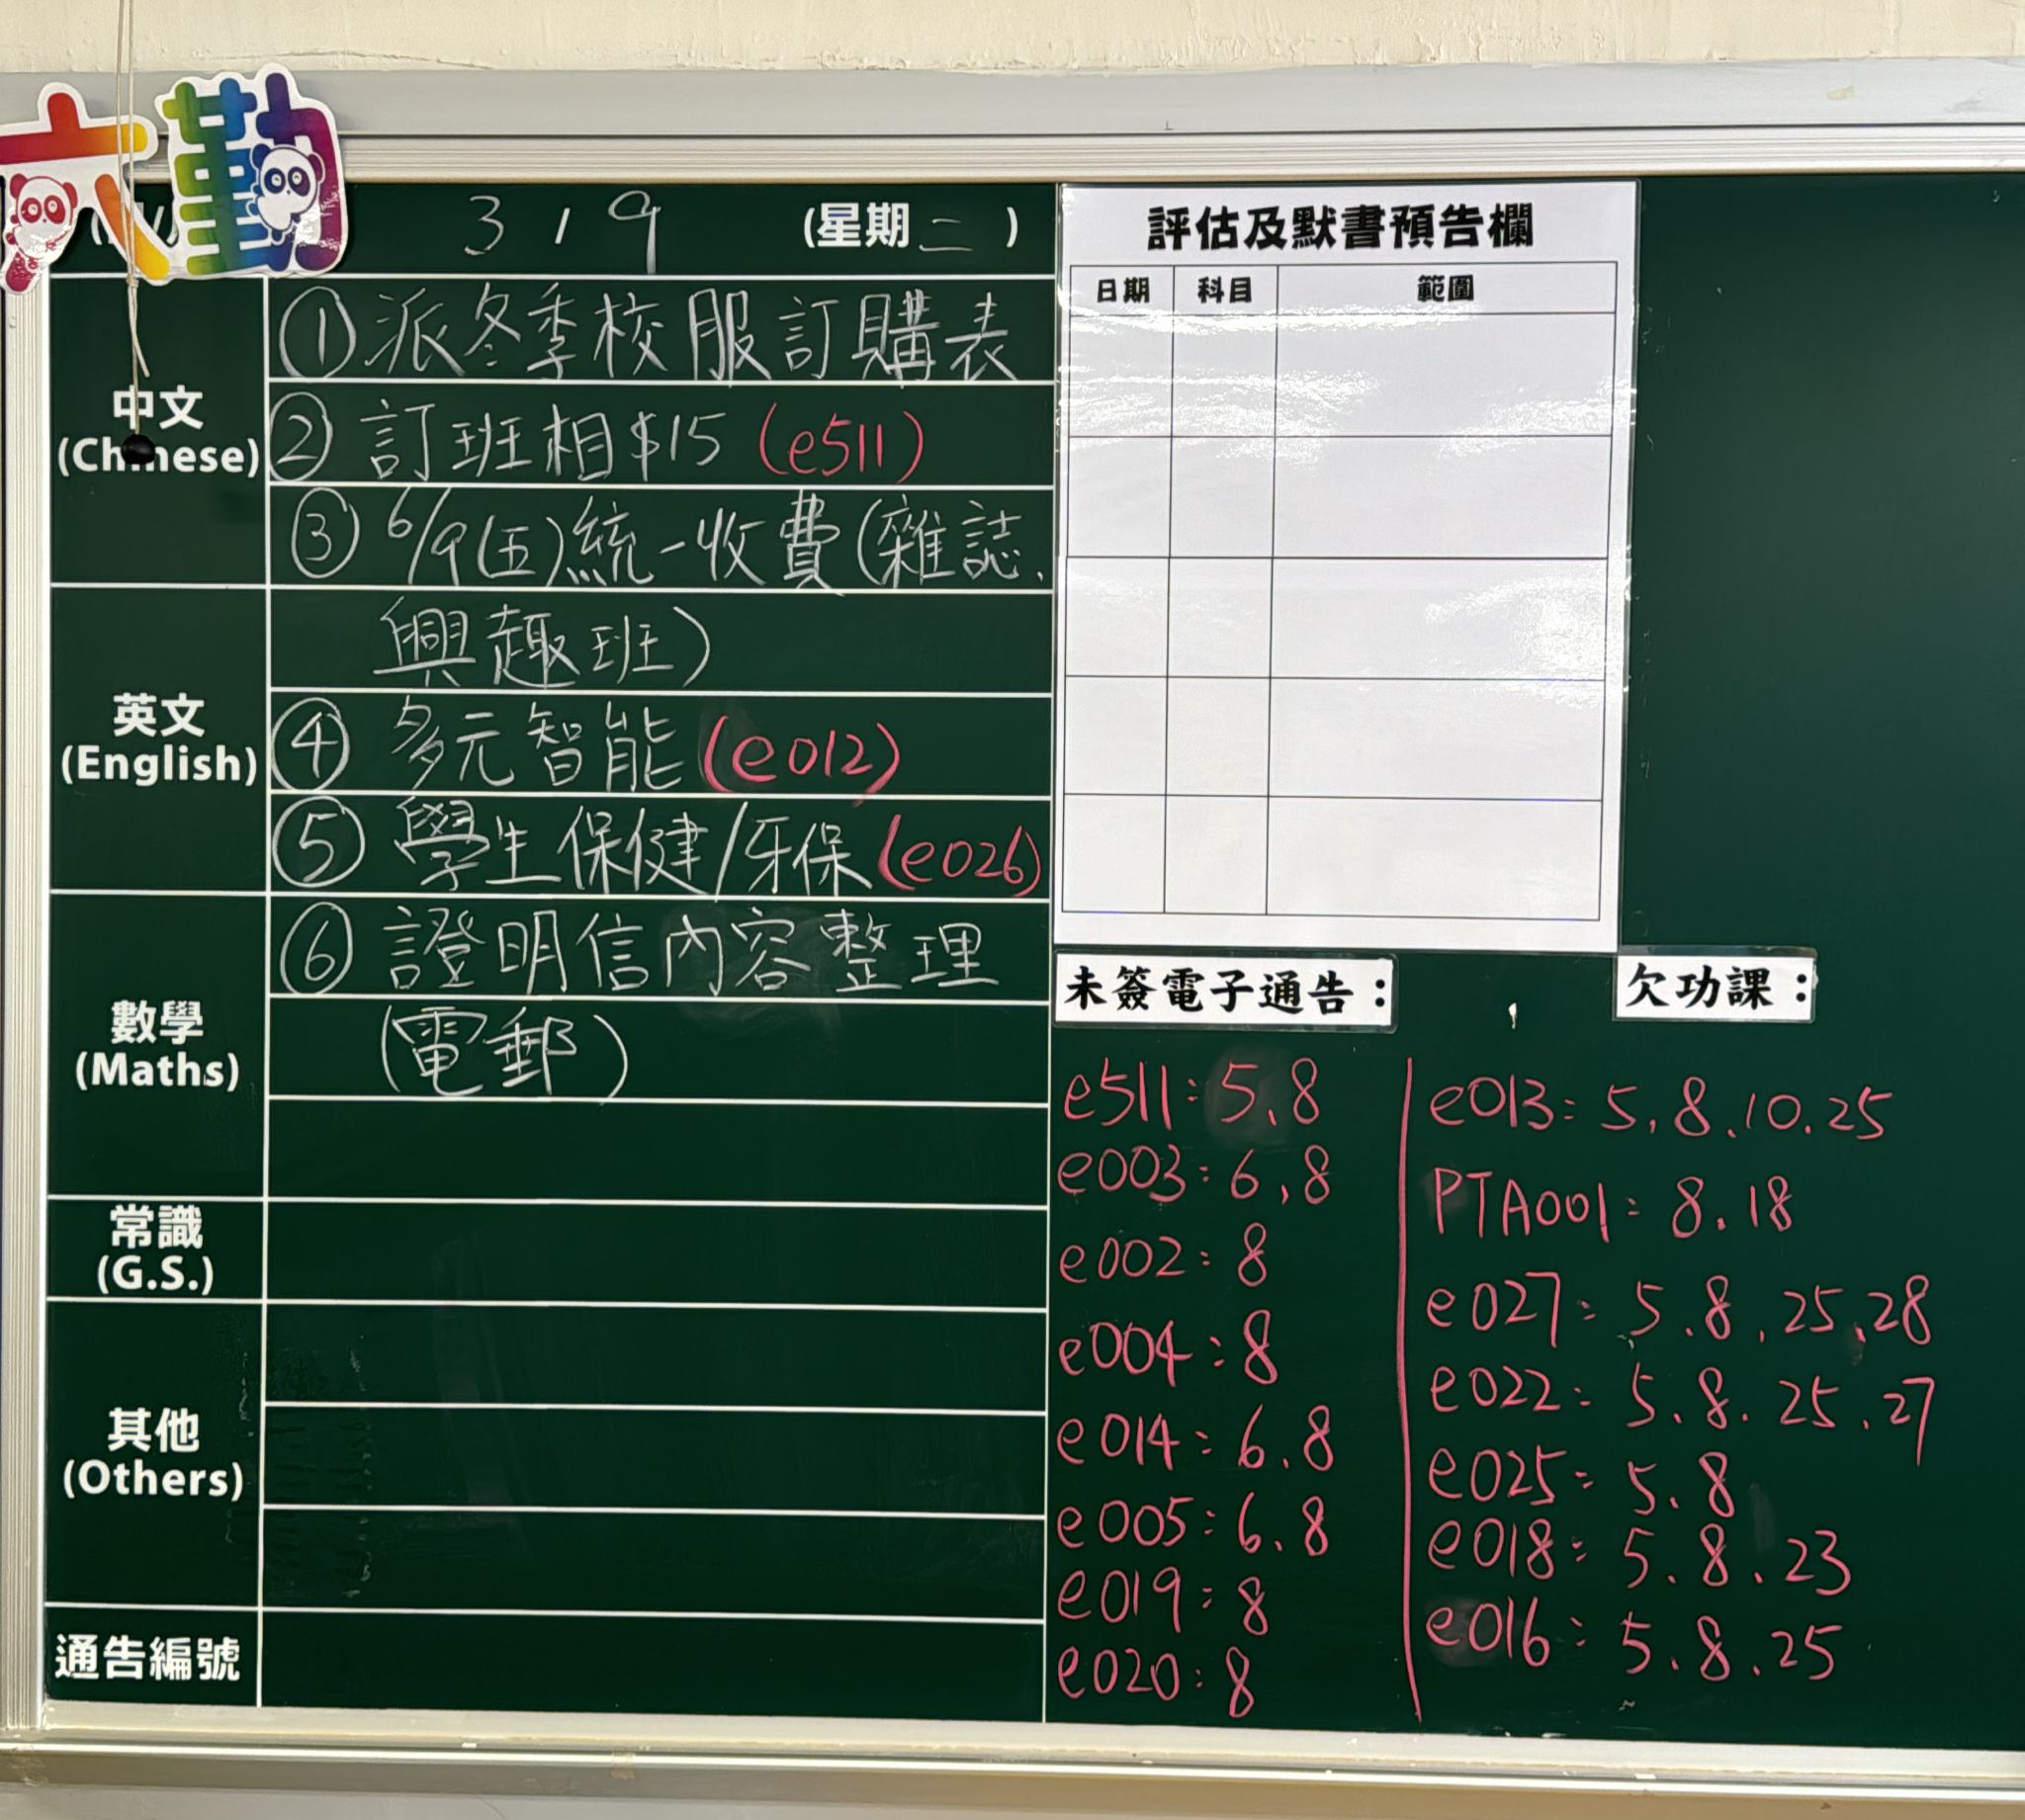 六勤
3 / 9 (星期二)
中文
(Chinese)
①派冬季校服訂購表
②訂班相$15 (e511)
③6/9(五)統一收費(雜誌、
英文
(English)
興趣班)
④多元智能(e012)
⑤學生保健/牙保(e026)
數學
(Maths)
⑥證明信內容整理
(電郵)
常識
(G.S.)
其他
(Others)
通告編號
評估及默書預告欄
日期 科目 範圍
未簽電子通告：
e511：5、8
e003：6，8
e002：8
e004：8
e014：6.8
e005：6.8
e019：8
e020：8
欠功課：
e013：5、8、10.25
PTA001：8.18
e027：5.8.25.28
e022：5.8.25.27
e025：5.8
e018：5.8.23
e016：5.8.25